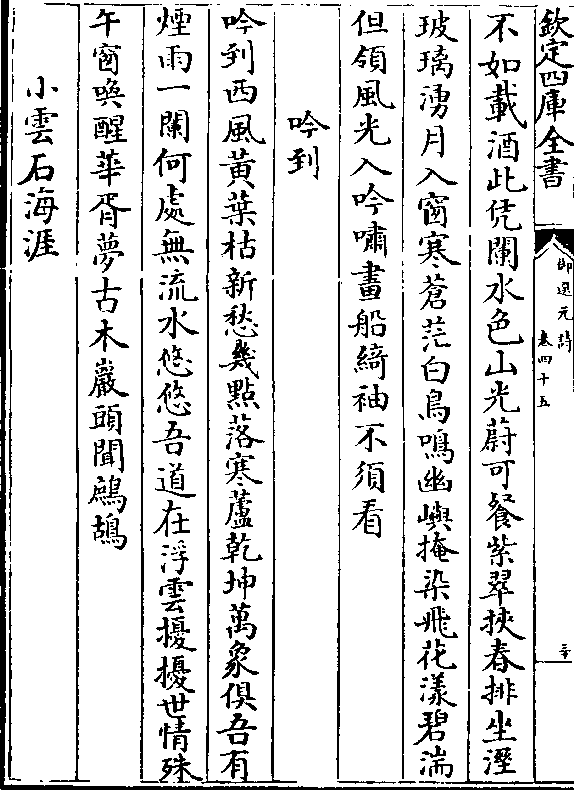 欽定四庫全書
御選元詩
卷四十五
三十
不如載酒此凭闌水色山光蔚可餐紫翠挾春排坐溼
玻璃湧月入窗寒蒼茫白鳥鳴幽嶼掩染飛花漾碧湍
但領風光入吟嘯畫船綺袖不須看
吟到
吟到西風黄葉枯新愁幾點落寒蘆乾坤萬象俱吾有
煙雨一闌何處無流水悠悠吾道在浮雲擾擾世情殊
午窗喚醒華胥夢古木巖頭聞鷓鴣
小雲石海涯